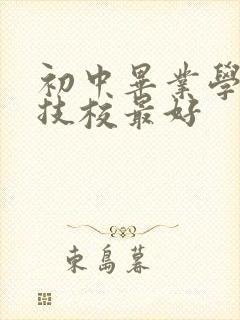 初中畢業學
技校最好
東島暮